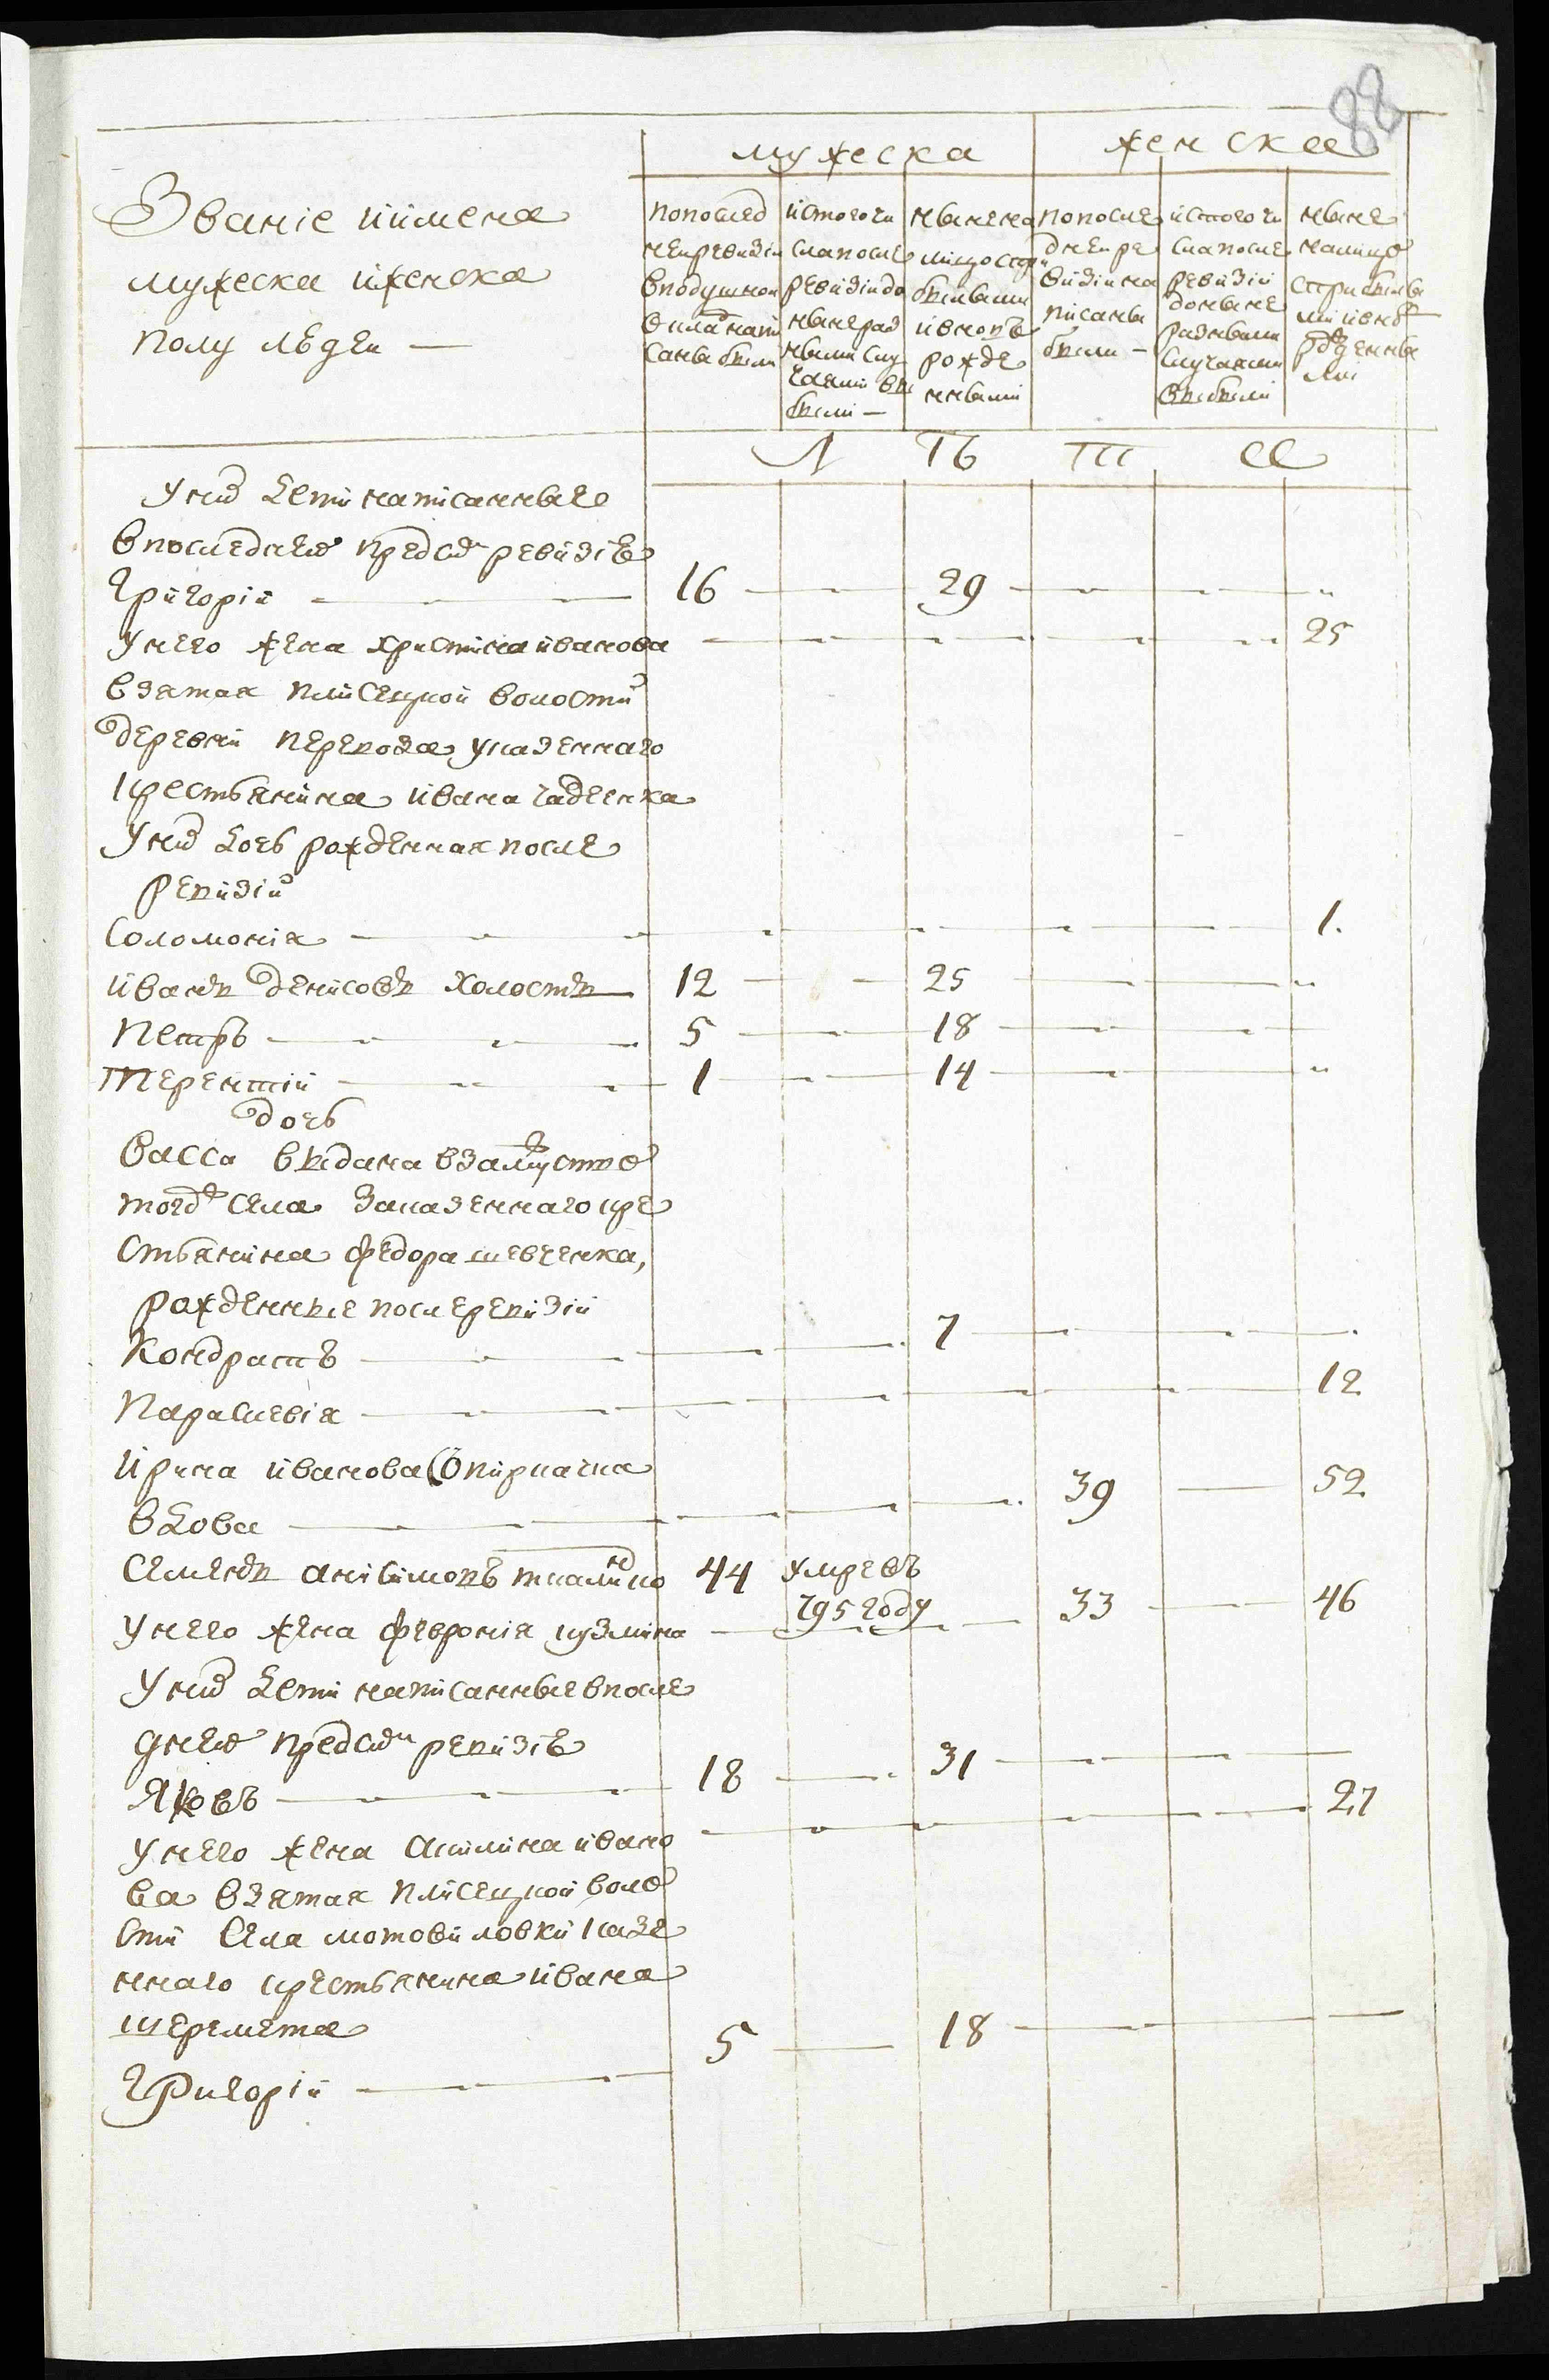 88
мужеска
женска
Званіе иимена
мужеска иженска
полу людеи —
попослед
неиревизіи
вподушном
окладе напи
саны были
истого чи
сла после
ревизіи до
ныне раз
ными слу
чаями вы
были —
ныне на
лицо с при
былыми
ивновь
рожде
нными
попосле
днеи ре
визіи на
писаны
были —
истого чи
сла после
ревизіи
доныне
разными
случаями
выбыли
ныне
налицо
сприбылы
ми ивно
рожденны
ми
Л Ѣ Т А
Уних дети написанные
впоследнеи предсим ревизіи
Григорій — 16 — 29 — "
Унего жена христина иванова — 25
взятая плисецкой волости
деревни перевоза указенного
крестьянина ивана гаденка
Уних дочь рожденная после
ревизіи
Соломонія — 1.
иванъ денисовъ холостъ 12 — 25 — "
Петръ — 5 — 18 —
Терентій — 1 — 14 — "
дочь
васса выдана взамужство
тогож села за казенного кре
стьянина федора шевченка,
рожденные послеревизіи
Кондратъ — 7 —
Параскевія — 12
Ирина иванова
вдова — 39 — 52
Семенъ анисимовъ 44 умревъ
795 году
унего жена февронія кузмина — 33 — 46
Уних дети написанные впосле
днеи предсим ревизіи
Яковъ — 18 — 31 —
унего жена акилина ивано — 27
ва взятая плисецкой воло
сти села мотовиловки казе
нного крестьянина ивана
шеремета
Григорій — 5 — 18 —